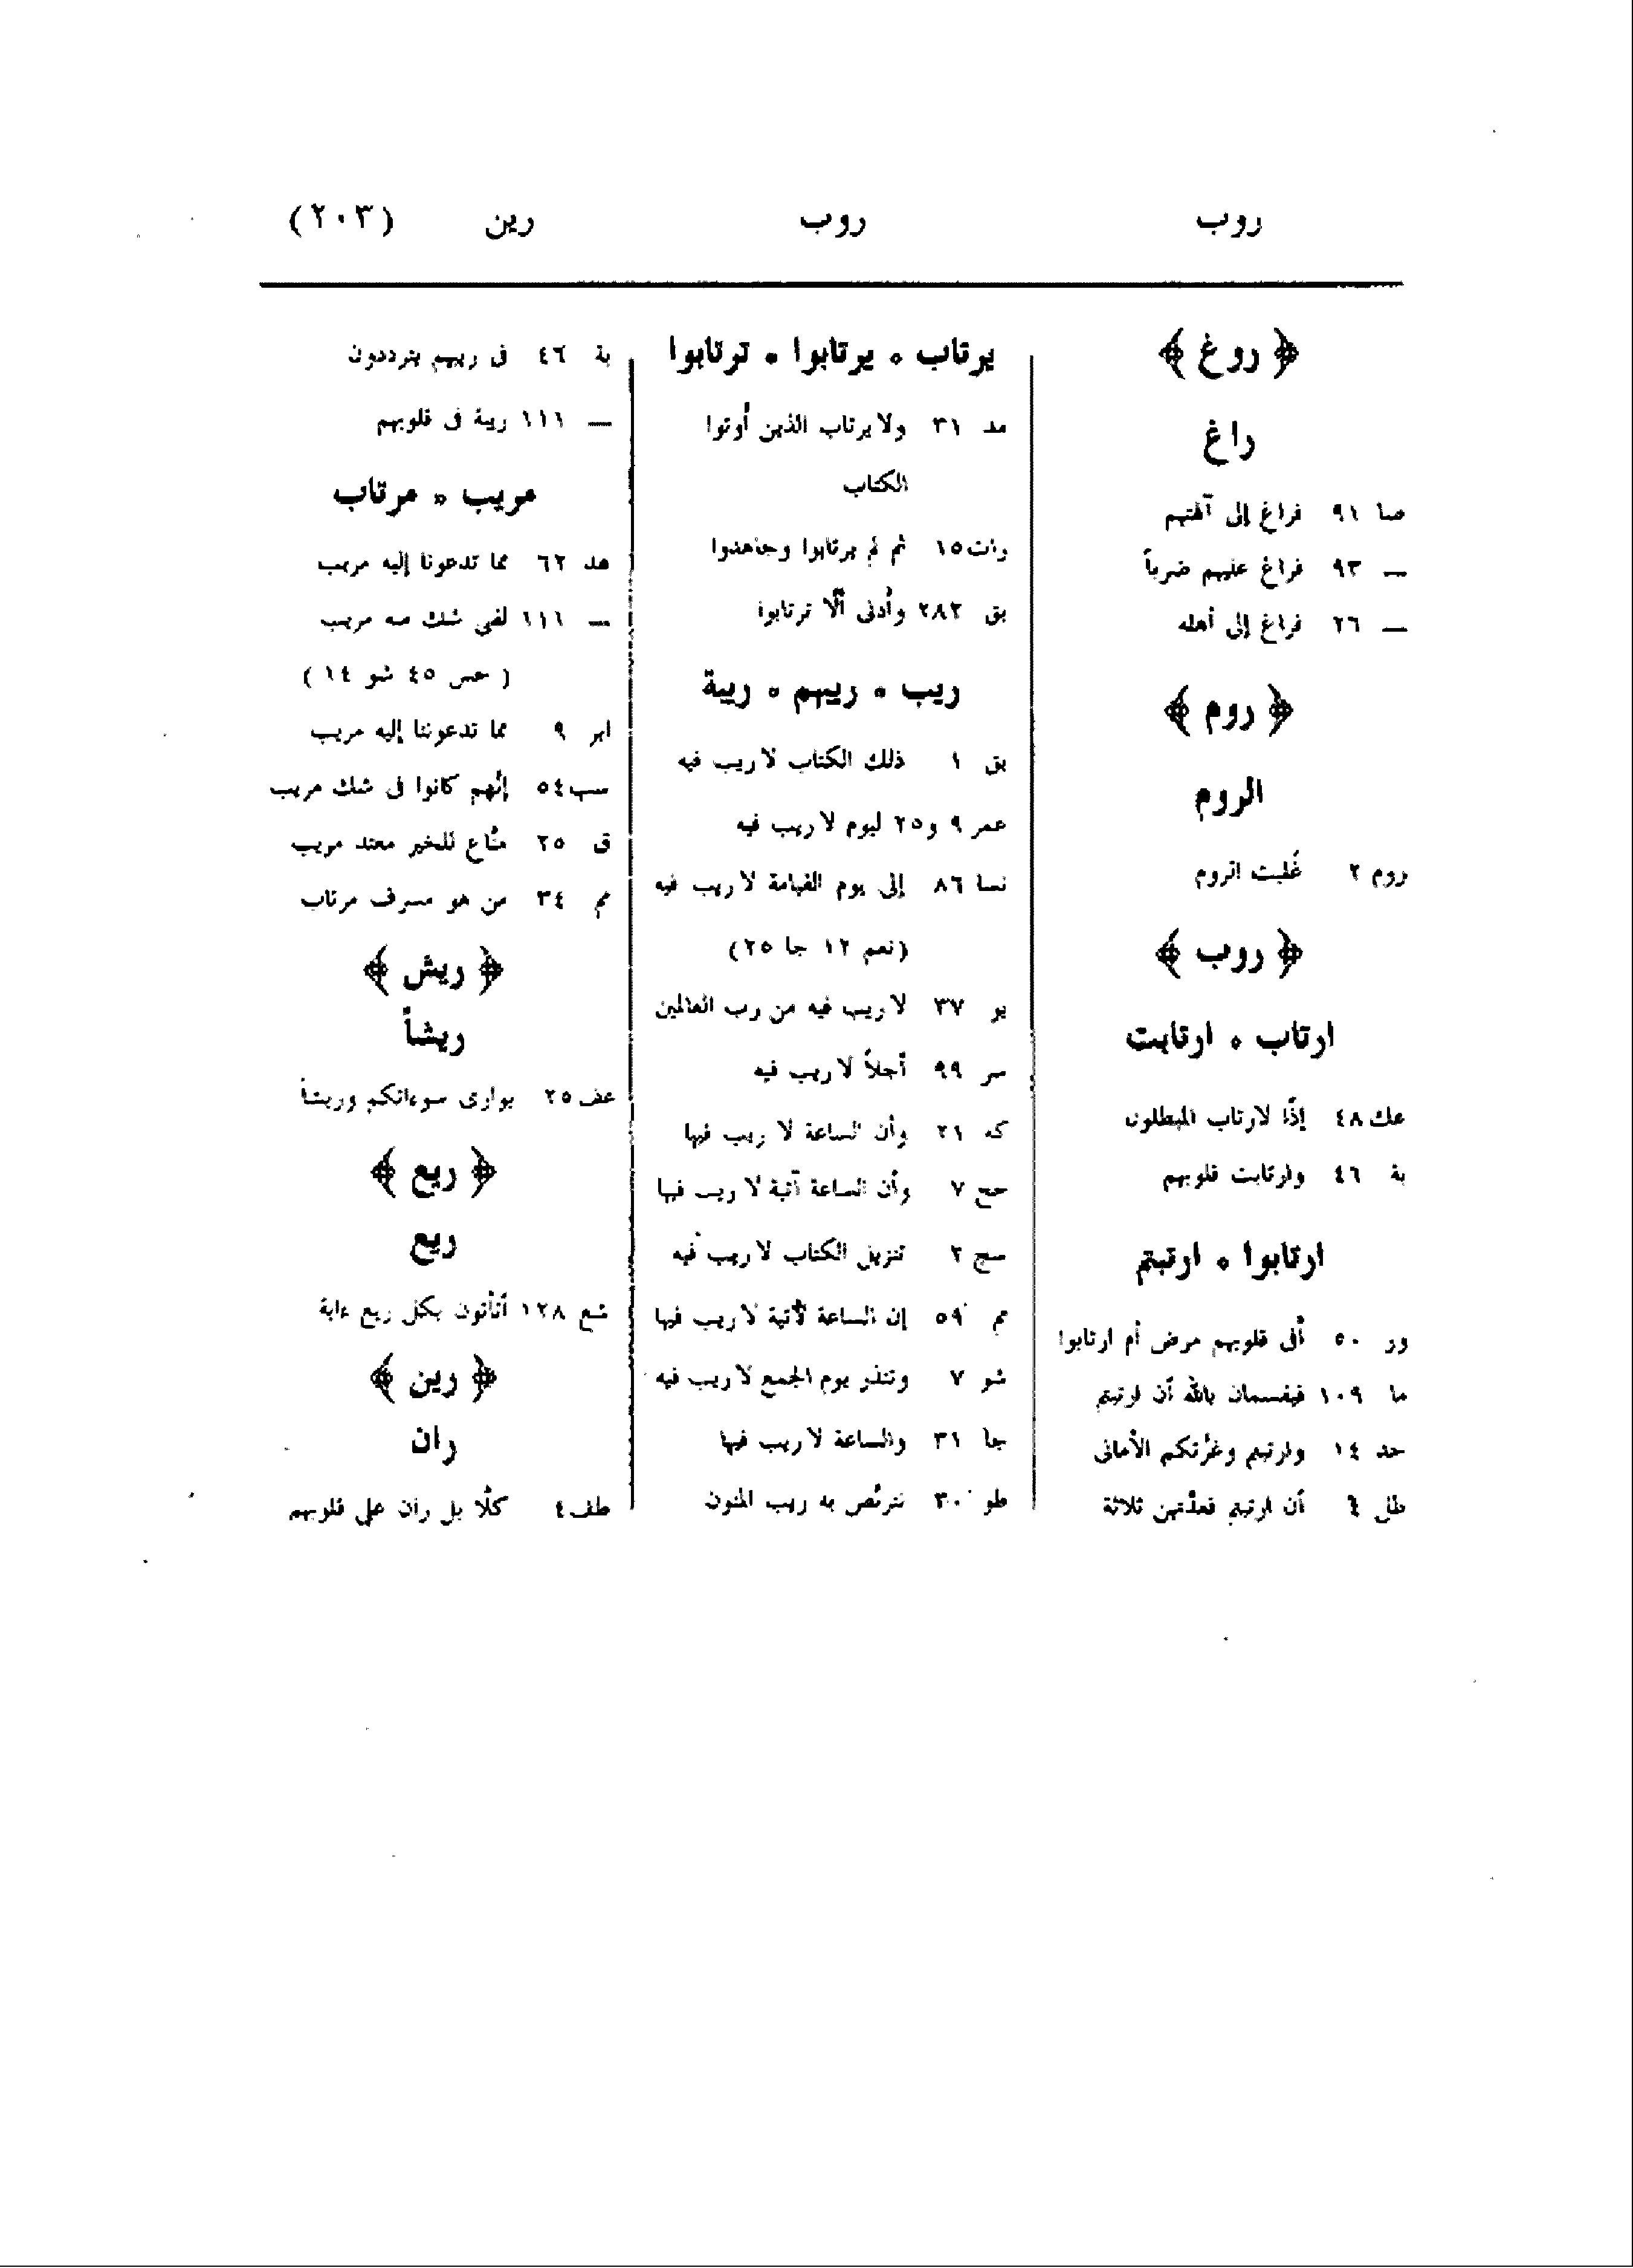 روب روب رين (٢٠٣)
﴿ روغ ﴾
راغ
صا ٩١ فراغ إلى آلهتهم
— ٩٣ فراغ عليهم ضرباً
— ٢٦ فراغ إلى أهله
﴿ روم ﴾
الروم
روم ٢ غُلبت الروم
﴿ روب ﴾
ارتاب ٥ ارتابت
عك ٤٨ إذًا لارتاب المبطلون
بة ٤٦ وارتابت قلوبهم
ارتابوا ٥ ارتبتم
ور ٥٠ أفى قلوبهم مرض أم ارتابوا
ما ١٠٩ فيقسمان بالله أن ارتبتم
حد ١٤ وارتبتم وغرّتكم الأمانى
طل ٤ أن ارتبتم فعدّتهن ثلاثة
يرتاب ٥ يرتابوا ٥ ترتابوا
مد ٣١ ولا يرتاب الذين أوتوا
الكتاب
رات ١٥ ثم لم يرتابوا وجاهدوا
بق ٢٨٢ وأدنى ألّا ترتابوا
ريب ٥ ريبهم ٥ ريبة
بق ١ ذلك الكتاب لا ريب فيه
عمر ٩ و٢٥ ليوم لا ريب فيه
نسا ٨٦ إلى يوم القيامة لا ريب فيه
(نعم ١٢ جا ٢٥)
يو ٣٧ لا ريب فيه من رب العالمين
سر ٩٩ أجلاً لا ريب فيه
كه ٢١ وأن الساعة لا ريب فيها
حج ٧ وأن الساعة آتية لا ريب فيها
سج ٢ تنزيل الكتاب لا ريب فيه
مم ٥٩ إن الساعة لآتية لا ريب فيها
شو ٧ وتنذر يوم الجمع لا ريب فيه
جا ٣١ والساعة لا ريب فيها
طو ٣٠ نتربّص به ريب المنون
بة ٤٦ فى ريبهم يترددون
— ١١١ ريبة فى قلوبهم
مريب ٥ مرتاب
هد ٦٢ مما تدعونا إليه مريب
— ١١١ لفى شك منه مريب
( حس ٤٥ شو ١٤ )
ابر ٩ مما تدعوننا إليه مريب
سب ٥٤ إنّهم كانوا فى شك مريب
ق ٢٥ منّاع للخير معتد مريب
مم ٣٤ من هو مسرف مرتاب
﴿ ريش ﴾
ريشاً
عف ٢٥ يوارى سوءاتكم وريشاً
﴿ ريع ﴾
ريع
شع ١٢٨ أتأتون بكل ريع ءاية
﴿ رين ﴾
ران
طف ٤ كلّا بل ران على قلوبهم